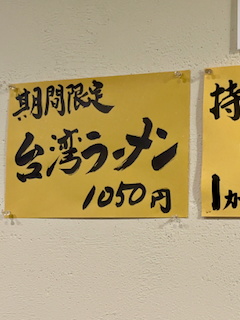 期間限定
台湾ラーメン
1050円
持
1か